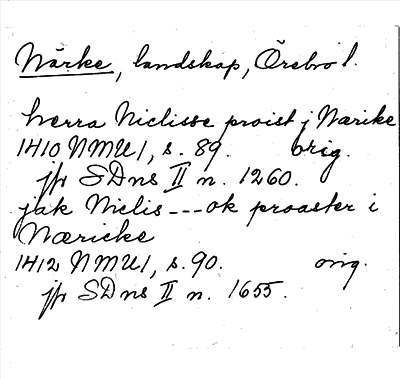 Närke, landskap, Örebro l.
herra Niclisse proist j Nærike
1410 NMU1, s. 89. orig.
jfr SDns II n. 1260.
jak Niclis --- ok proaster i
Næricke
1412 NMU1, s. 90. orig.
jfr SDns II n. 1655.